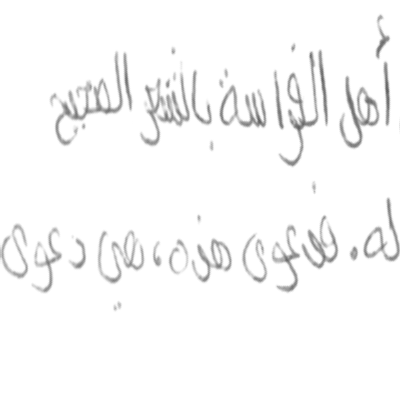 أهل الفراسة بالشعر الصحيح
له. فدعوى هذه، هي دعوى